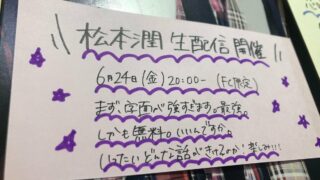 \\ 松本潤 生配信 開催 //
6月24日(金) 20:00- (FC限定)
まず、字面が強すぎます。最強。
しかも無料。いいんですか。
いったいどんな話がきけるのか! 楽しみ!!!